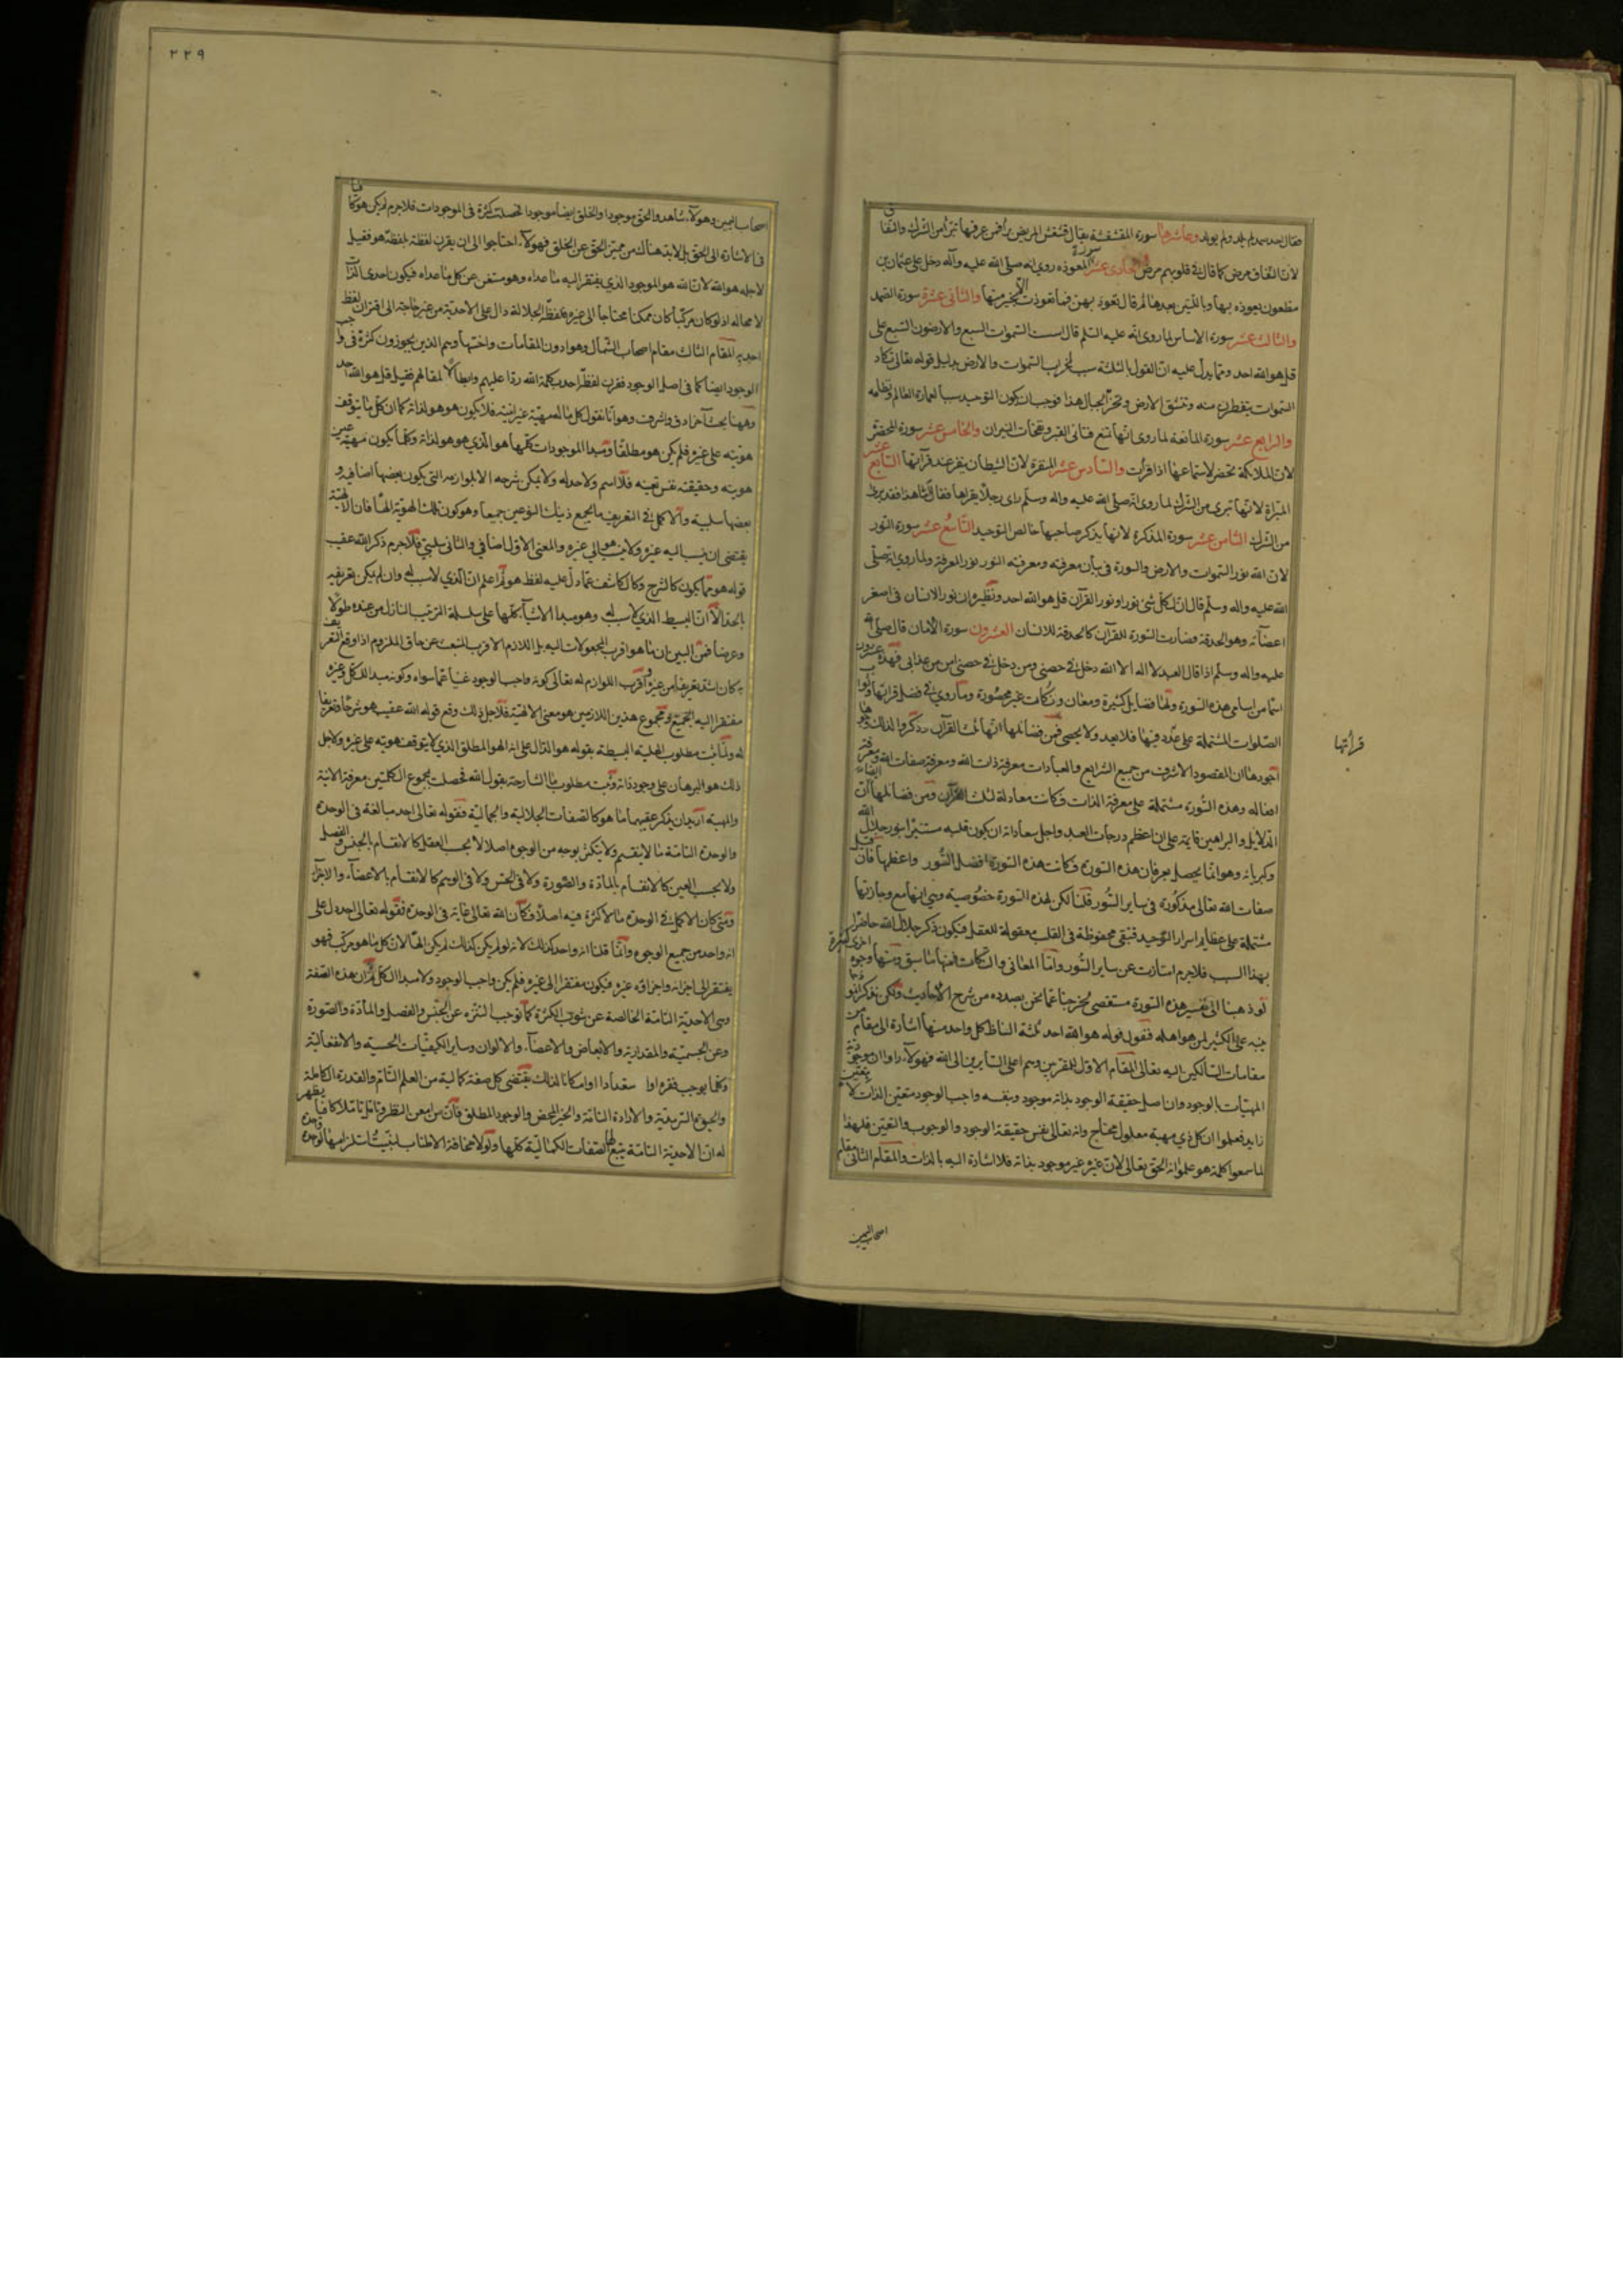 فقال احد صمد لم يلد ولم يولد وعاشرها سورة المقشقشة يقال قشقش المريض برأ فمن عرفها تبرأ من الشرك والنفاق
لان النفاق مرض كما قال في قلوبهم مرض الحادى عشر سورة المعوذه روى انه صلى الله عليه وآله دخل على عثمان بن
مظعون بعوذه بها وباللتين بعدها ثم قال تعوذ بهن فما تعوذت بخير منها والثانى عشرة سورة الصمد
والثالث عشر سورة الاساس لما روى انه عليه السلم قال اسست السموات السبع والارضون السبع على
قل هو الله احد ومما يدل عليه ان القول بالثلثة سبب لخراب السموات والارض بدليل قوله تعالى تكاد
السموات يتفطرن منه وتنشق الارض وتخر الجبال هذا فوجب ان يكون التوحيد سببا لعمارة العالم ونظامه
والرابع عشر سورة المانعة لما روى انها تمنع فتانى القبر ونفخات النيران والخامس عشر سورة المحضر
لان الملائكة تحضر لاستماعها اذا قرأت والسادس عشر المنفرة لان الشيطان ينفر عند قرآتها السابع عشر
المبراة لانها تبرى من الشرك لما روى انه صلى الله عليه واله وسلم راى رجلا يقراها فقال اما هذا فقد برئ
من الشرك الثامن عشر سورة المذكرة لانها يذكر صاحبها خالص التوحيد التاسع عشر سورة النور
لان الله نور السموات والارض والسورة فى بيان معرفته ومعرفته النور نور المعرفة ولما روى انه صلى
الله عليه واله وسلم قال ان لكل شئ نورا ونور القرآن قل هو الله احد ونظيره ان نور الانسان فى اصغر
اعضآئه وهو الحدقة فصارت السورة للقرآن كالحدقة للانسان العشرون سورة الامان قال صلى الله
عليه واله وسلم اذا قال العبد لا اله الا الله دخل فى حصنى ومن دخل فى حصنى امن من عذابى فهذه عشرون
اسما من اسامى هذه السورة ولها فضايل كثيرة ومعان ونكات غير محصورة وما روى فى فضل قرائتها وثواب
الصلوات المشتملة على عدد فيها فلا يعد ولا يحصى فمن فضائلها انها ثلث القرآن وذكروا لذلك وجوها
اجودها ان المقصود الاشرف من جميع الشرايع والعبادات معرفة ذات الله ومعرفة صفات الله ومعرفة
افعاله وهذه السورة مشتملة على معرفة الذات فكانت معادلة لثلث القرآن ومن فضائلها ايضا ان
الدلايل والبراهين قايمة على ان اعظم درجات العبد واجل سعاداته ان يكون قلبه مستنيرا بنور جلال الله
وكبريائه وهو انما يحصل بعرفان هذه السورة فكانت هذه السورة افضل السور واعظمها فان قيل
صفات الله تعالى مذكورة فى ساير السور قلنا لكن لهذه السورة خصوصية وهى انها مع وجازتها
مشتملة على عظايم اسرار التوحيد فتبقى محفوظة فى القلب معقولة للعقل فيكون ذكر جلال الله حاضرا
بهذا السبب فلاجرم امتازت عن ساير السور واما المعانى والنكات فمنها ما سبق ومنها وجوه اخرى كثيرة
لو ذهبنا الى تفسير هذه السورة مستقصى لخرجنا عما نحن بصدده من شرح الاحاديث ولكن نذكر انموذجا
ينبه على الكثير لمن هو اهله فنقول قوله هو الله احد ثلثة الفاظ كل واحد منها اشارة الى مقام من
مقامات السالكين اليه تعالى المقام الاول للمقربين وهم اعلى السايرين الى الله فهولآء راوا ان موجودية
المهيات بالوجود وان اصل حقيقة الوجود بذاته موجود وبنفسه واجب الوجود متعين الذات لا بتعين
زايد فعلموا ان كل ذى مهية معلول محتاج وانه تعالى نفس حقيقة الوجود والوجوب والتعين فلهذا
لما سمعوا كلمة هو علموا انه الحق تعالى لان غيره غير موجود بذاته فلا اشارة اليه بالذات والمقام الثانى مقام
اصحاب اليمين
قرأتها
٢٢٩
اصحاب اليمين وهولآء شاهدوا الحق موجودا والخلق ايضا موجودا فحصلت كثرة فى الموجودات فلاجرم لم يكن هو كافيا
فى الاشارة الى الحق بل لابد هناك من مميز الحق عن الخلق فهولآء احتاجوا الى ان يقرن لفظة بلفظة هو فقيل
لاجله هو الله لان الله هو الموجود الذى يفتقر اليه ما عداه وهو مستغن عن كل ما عداه فيكون احدى الذات
لا محاله اذ لو كان مركبا كان ممكنا محتاجا الى غيره فلفظة الجلالة دال على الاحدية من غير حاجة الى اقتران لفظ
احد به المقام الثالث مقام اصحاب الشمال وهو ادون المقامات واخسها وهم الذين يجوزون كثرة فى واجب
الوجود ايضا كما فى اصل الوجود فقرن لفظ احد بكلمة الله ردا عليهم وابطالا لمقالهم فقيل قل هو الله احد
وههنا بحث آخر ادق واشرف وهو انا نقول كل ما له مهية غير انيته فلا يكون هو هو لذاته كما ان كل ما يتوقف
هويته على غيره فلم يكن هو مطلقا ومبدا الموجودات كلها هو الذى هو هو لذاته وكلما يكون مهيته عين
هويته وحقيقته نفس تعينه فلا اسم ولا حد له ولا يمكن شرحه الا بلوازمه التى يكون بعضها اضافية و
بعضها سلبية والاكمل فى التعريف ما يجمع ذينك النوعين جميعا وهو كون تلك الهوية الها فان الالهية
يقتضى ان ينسب اليه غيره ولا ينسب هو الى غيره والمعنى الاول اضافى والثانى سلبى فلاجرم ذكر الله عقيب
قوله هو مما يكون كالشرح وكالكاشف عما دل عليه لفظ هو ثم اعلم ان الذى لا سبب له وان لم يكن تعريفه
بالحد الا ان البسيط الذى لا سبب له وهو مبدا الاشيآء كلها على سلسلة الترتيب النازل من عنده طولا
وعرضا فمن البين ان ما هو اقرب المجعولات اليه بل اللازم الاقرب المنبعث عن حاق الملزوم اذا وقع التعريف
به كان اشد تعريفا من غيره واقرب اللوازم له تعالى كونه واجب الوجود غنيا عما سواه وكونه مبدا للكل وغيره
مفتقرا اليه الجميع ومجموع هذين اللازمين هو معنى الالهية فلاجل ذلك وقع قوله الله عقيب هو شرحا وتعريفا
له ولما ثبت مطلوب الهلية البسيطة بقوله هو الدال على انه الهو المطلق الذى لا يتوقف هويته على غيره ولاجل
ذلك هو البرهان على وجود ذاته وثبت مطلوب ما الشارحة بقول الله فحصلت بمجموع الكلمتين معرفة الانية
والمهية اريد ان يذكر عقيبهما ما هو كالصفات الجلالية والجمالية فقوله تعالى احد مبالغة فى الوحدة
والوحدة التامة ما لا ينقسم ولا يتكثر بوجه من الوجوه اصلا لا بحسب العقل كالانقسام بالجنس والفصل
ولا بحسب العين كالانقسام بالمادة والصورة ولا فى الحس ولا فى الوهم كالانقسام بالاعضآء والاجزآء
ومتى كان الاكمل فى الوحدة ما لا كثرة فيه اصلا فكان الله تعالى غاية فى الوحدة فقوله تعالى احد دل على
انه واحد من جميع الوجوه وانما قلنا انه واحد كذلك لانه لو لم يكن كذلك لم يكن الها لان كل ما هو مركب فهو
يفتقر الى اجزائه واجزاؤه غيره فيكون مفتقرا الى غيره فلم يكن واجب الوجود ولا مبدا الكل ثم ان هذه الصفة
وهى الاحدية التامة الخالصة عن شوب الكثرة كما توجب التنزه عن الجنس والفصل والمادة والصورة
وعن الجسمية والمقدارية والابعاض والاعضآء والالوان وساير الكيفيات الحسية والانفعالية
وكلما يوجب فقرا او استعدادا او امكانا كذلك يقتضى كل صفة كمالية من العلم التام والقدرة الكاملة
والحيوة السرمدية والارادة التامة والخير المحض والوجود المطلق فان من امعن النظر وتامل تاملا كافيا يظهر
له ان الاحدية التامة ينبع لها الصفات الكمالية كلها ولولا مخافة الاطناب لبينت استلزامها لواحدة